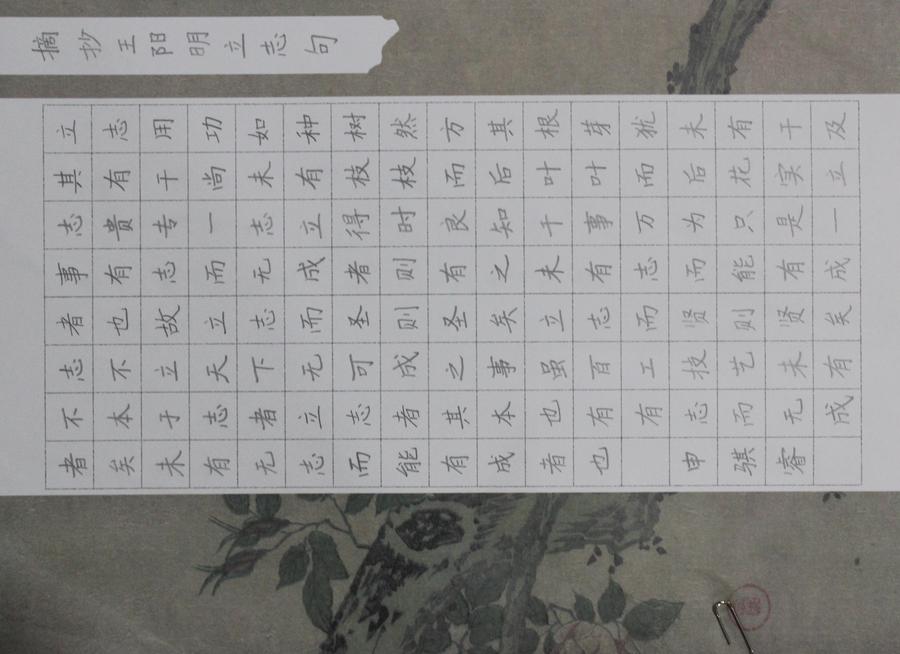 摘抄王阳明立志句
立志用功如种树然方其根芽犹未有干及
其有干尚未有枝枝而后叶叶而后花实立
志贵专一志立得时良知千事万为只是一
事有志而无成者则有之未有志而能有成
者也故立志而圣则圣矣立志而贤则贤矣
志不立天下无可成之事虽百工技艺未有
不本于志者立志者其本也有有志而无成
者矣未有无志而能有成者也 申骐睿